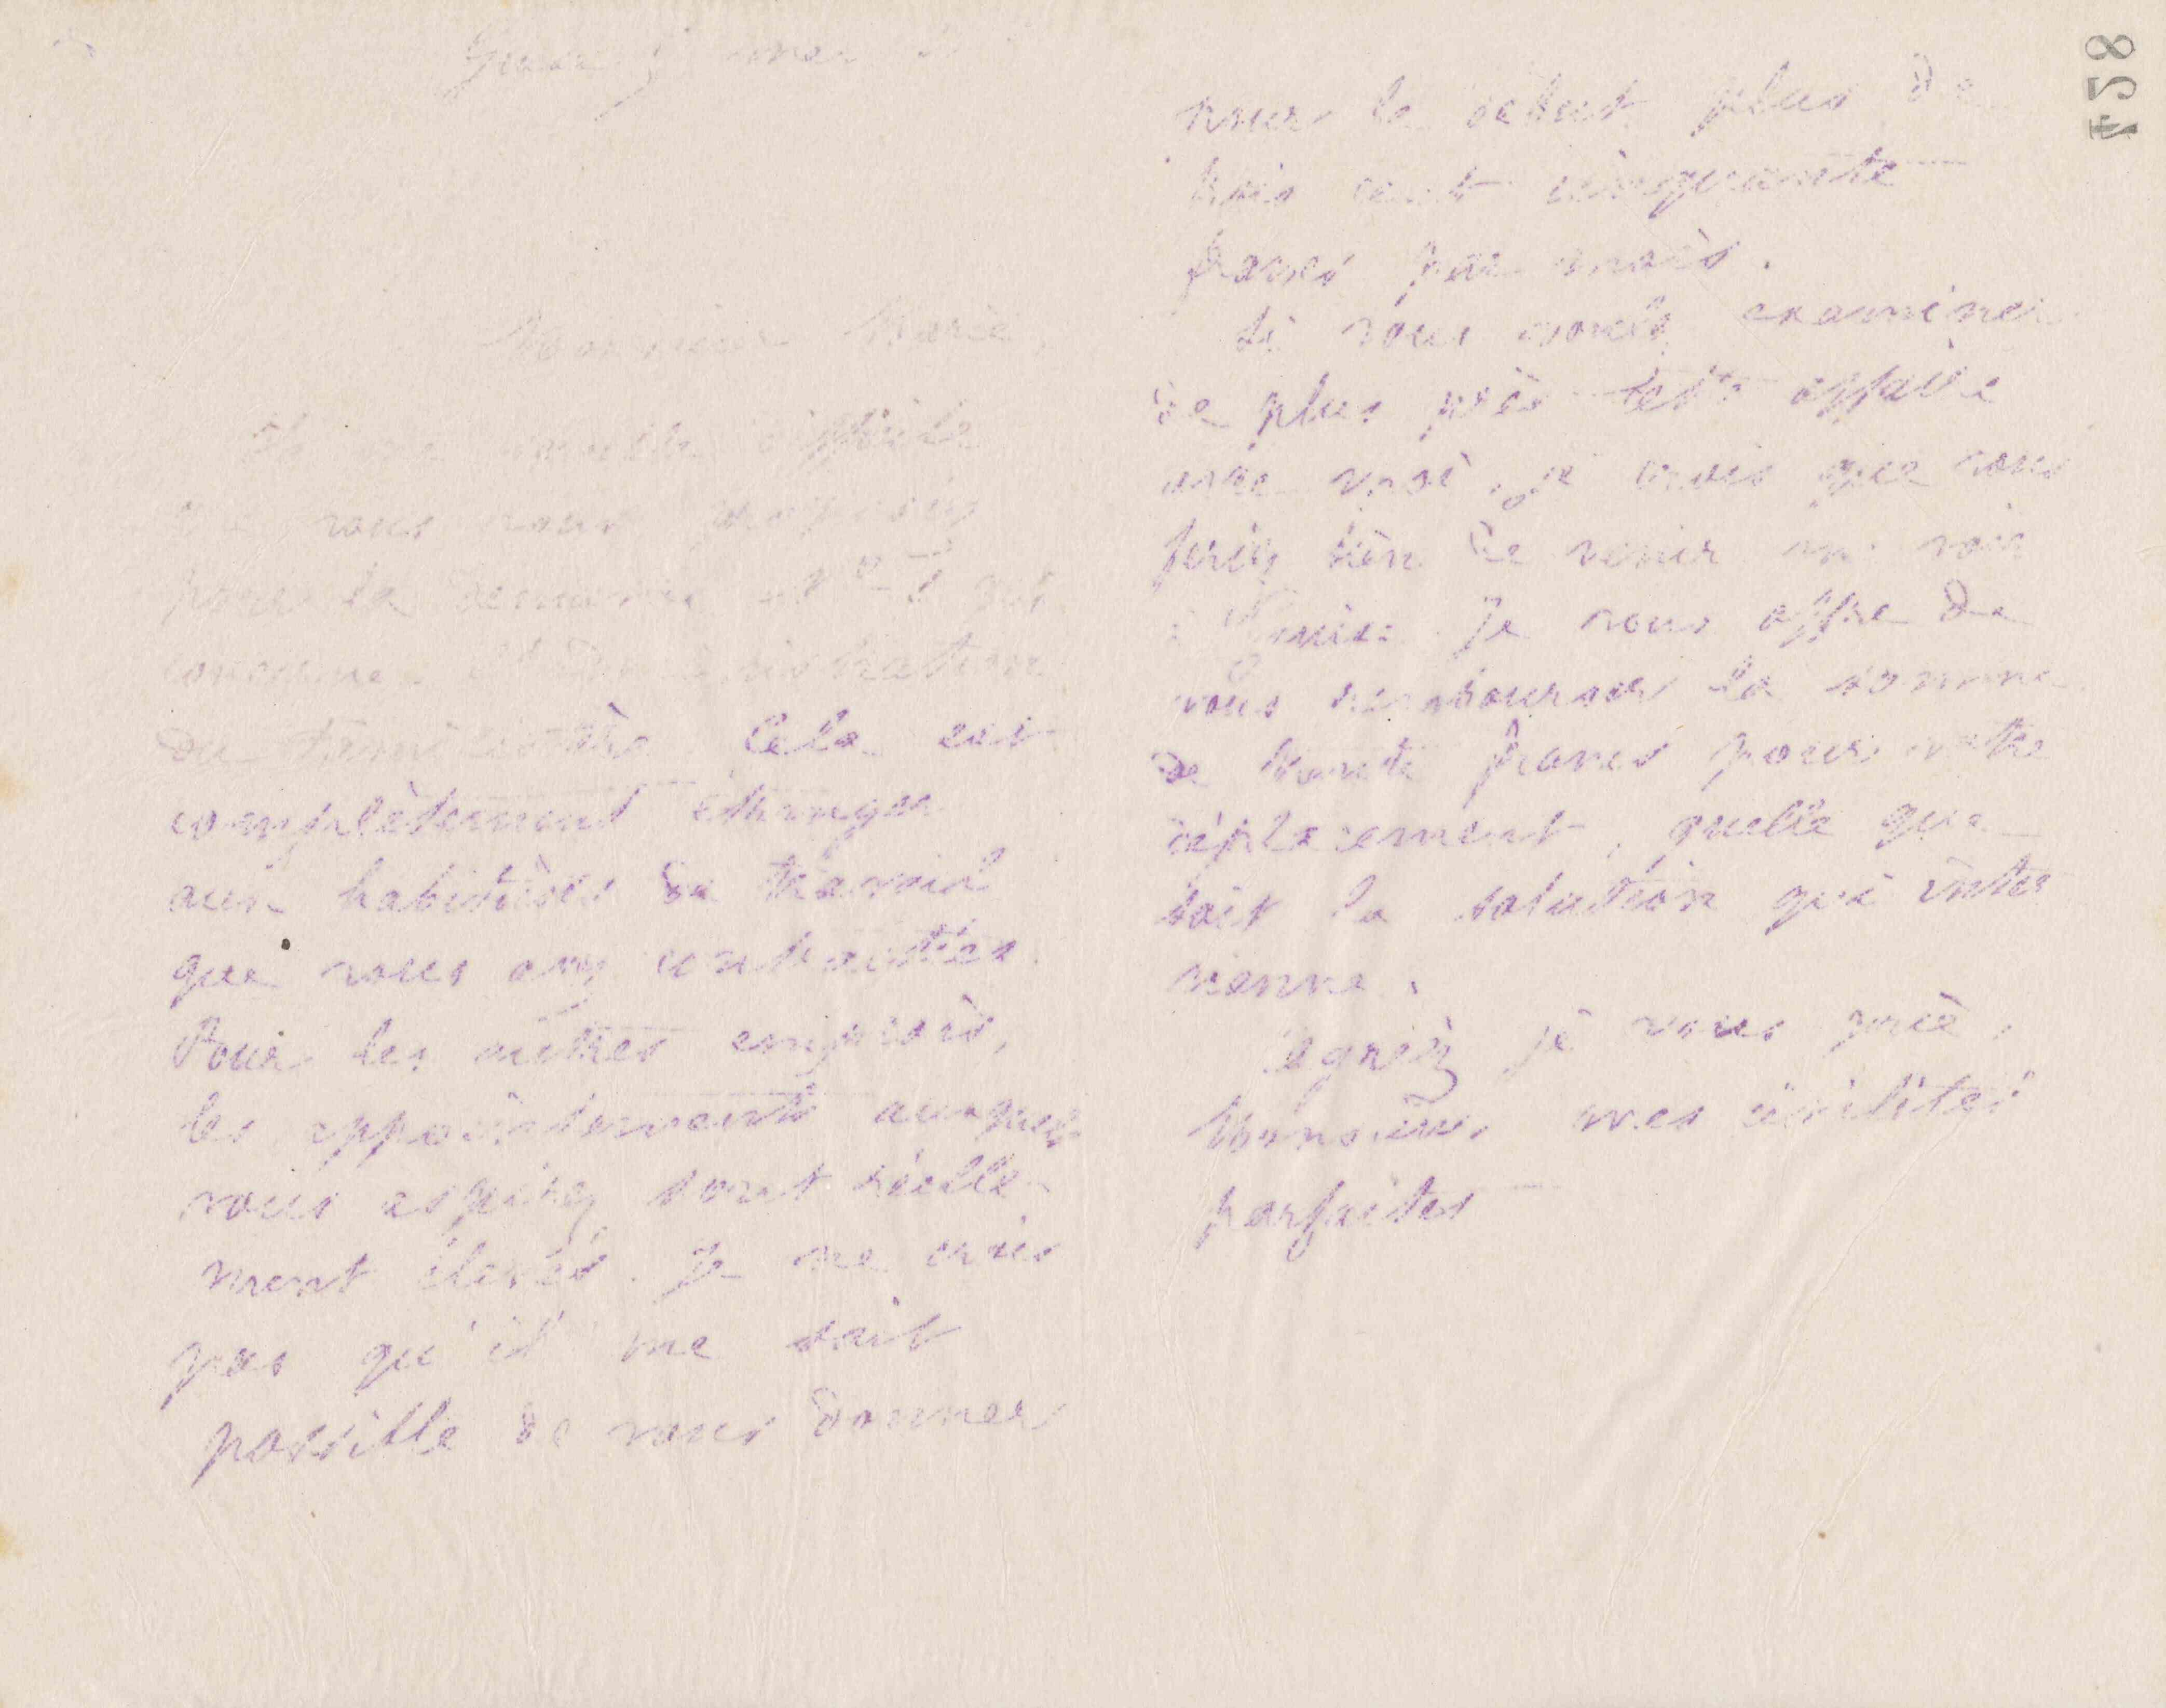 Guise
Monsieur Marie,
Il me semble difficile
que vous vous
pour la demande n° 1 qui
concerne l'administration
du familistère. Cela est
complètement étranger
aux habitudes de travail
que vous avez contractées.
Pour les autres emplois,
les appointements auxquels
vous aspirez sont réelle-
ment élevés. Je ne crois
pas qu'il me soit
possible de vous donner
pour le début plus de
trois cent cinquante
francs par mois.
Si vous voulez examiner
de plus près cette affaire
avec moi, je crois que vous
feriez bien de venir me voir
à Guise. Je vous offre de
vous rembourser la somme
de trente francs pour votre
déplacement, quelle que
soit la solution qui inter
vienne.
Agréez je vous prie,
Monsieur, mes civilités
parfaites
F58